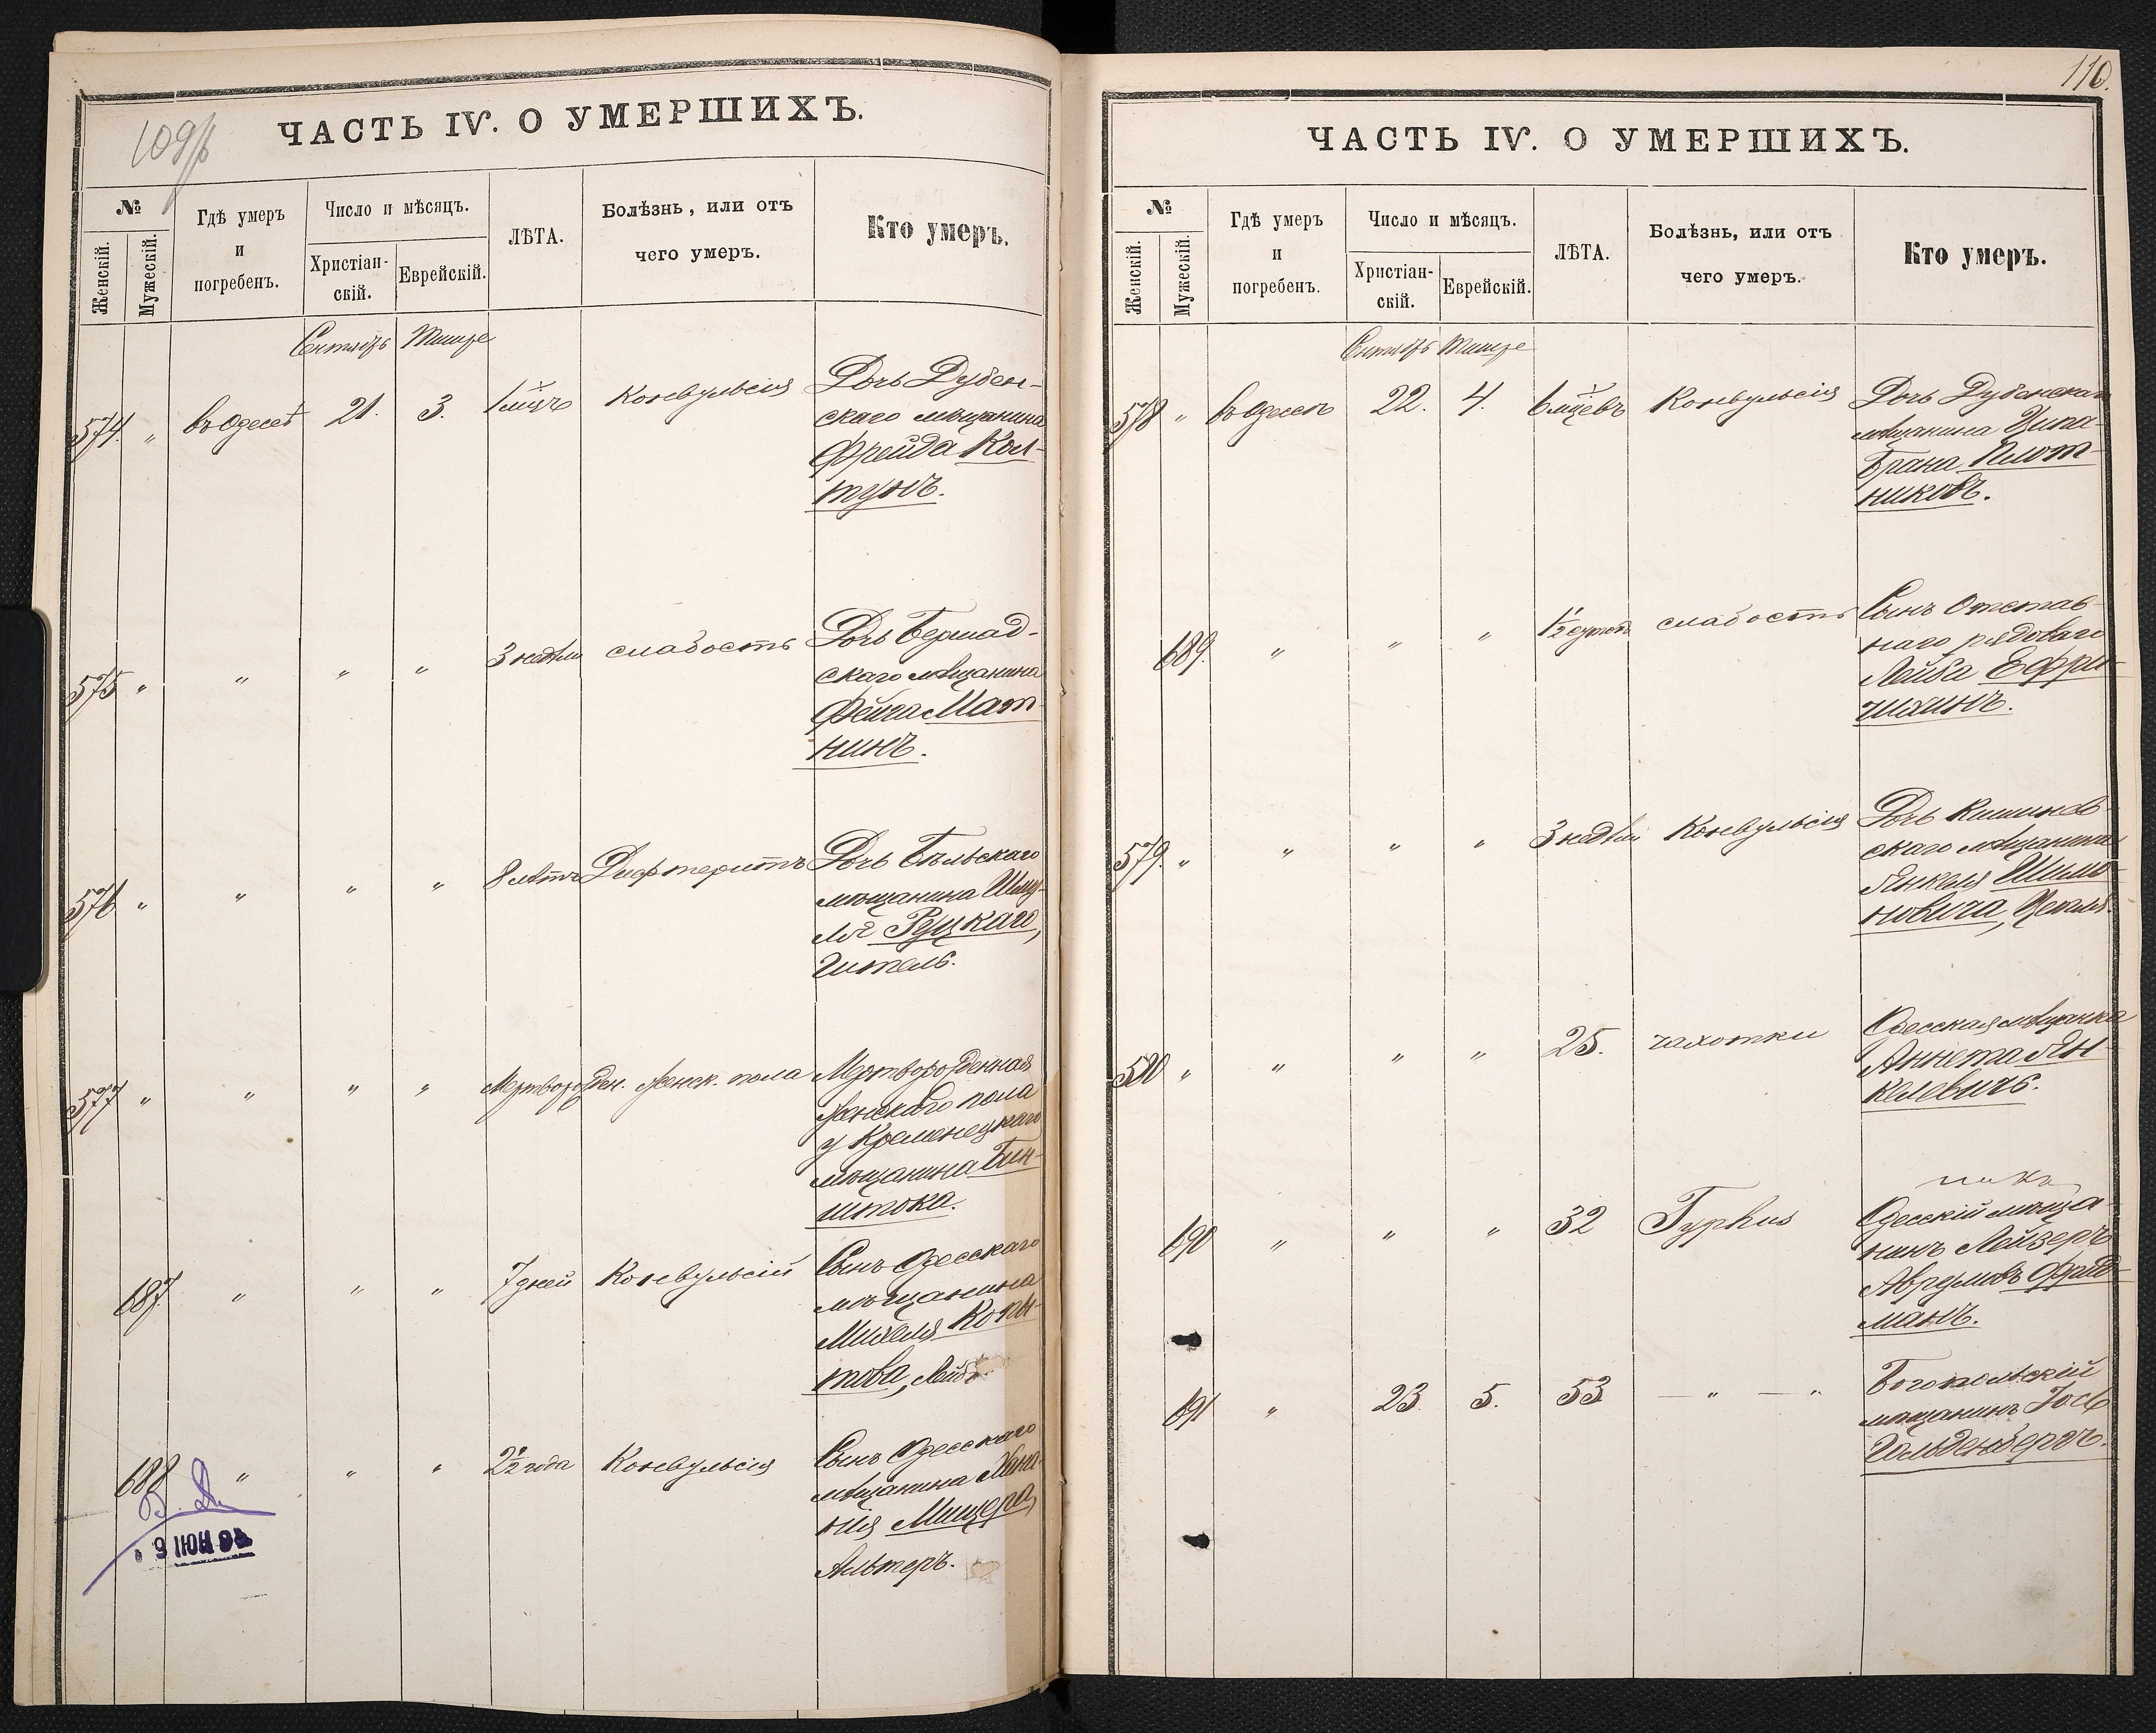 109/б
ЧАСТЬ IV. О УМЕРШИХЪ.
№
Женскій.
Мужескій.
Гдѣ умеръ
и
погребенъ.
Число и мѣсяцъ.
Христіан-
скій.
Еврейскій.
ЛѢТА.
Болѣзнь, или отъ
чего умеръ.
Кто умеръ.
Сентябрь Тишре
574. " въ Одессѣ 21. 3. 1 мѣц Конвульсія Дочь Дубен-
скаго мѣщанина
Фрейда Кол-
тунъ.
575 " " " " 3 недѣли слабость Дочь Бершад-
скаго мѣщанина
Фейга Мат-
нинъ.
576 " " " " 8 лѣтъ Дифтеритъ Дочь Бѣльскаго
мѣщанина Шму-
ля Руцкаго,
Гитель.
577 " " " " Мертворожден. женск. пола Мертворожденная
женскаго пола
у Кременецкаго
мѣщанина Бин-
штока.
687. " " " 7 дней Конвульсій Сынъ Одесскаго
мѣщанина
Михеля Копы-
това, Лейб
688 " " " 2½ года Конвульсія Сынъ Одесскаго
мѣщанина Хана-
нія Мицера,
Альтеръ.
9 ІЮН 9
110.
ЧАСТЬ IV. О УМЕРШИХЪ.
№
Женскій.
Мужескій.
Гдѣ умеръ
и
погребенъ.
Число и мѣсяцъ.
Христіан-
скій.
Еврейскій.
ЛѢТА.
Болѣзнь, или отъ
чего умеръ.
Кто умеръ.
Сентябрь Тишре
578 " въ Одессѣ 22. 4. 6 мцевъ Конвульсія Дочь Дубенскаго
мѣщанина Ципа-
Брана Плот-
никовъ.
689. " " " 1½ сутокъ слабость Сынъ Отстав-
наго рядоваго
Лейба Ефри-
шхинъ.
579. " " " " 3 недѣли Конвульсія Дочь Кишинев-
скаго мѣщанина
Янкеля Шимо-
новича,
580 " " " " 25. чахотки Одесская мѣщанка
Аннета Ян-
келевичъ.
690 " " " 32 Typhus Одесскій мѣща-
нинъ Лейзеръ
Аврумовъ Фрид-
манъ.
691 " 23. 5. 53 — " — " Богопольскій
мѣщанинъ Іось
Гольденбергъ.